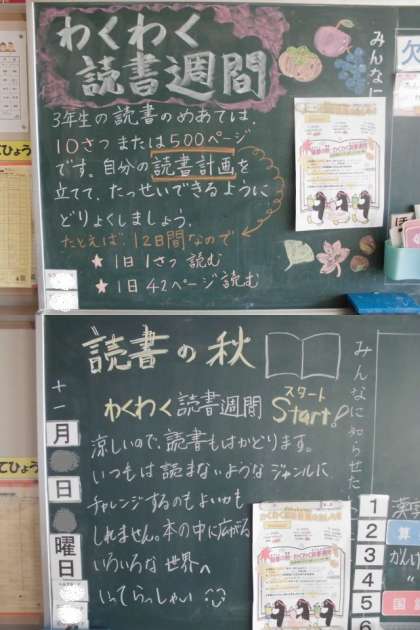 わくわく
読書週間
みんなに
欠
3年生の読書のめあては、
10さつまたは500ページ
です。自分の読書計画を
立てて、たっせいできるように
どりょくしましょう。
たとえば、12日間なので
★1日1さつ読む
★1日42ページ読む
わくわく読書週間
ひょう
読書の秋
わくわく読書週間
スタート
Start!
涼しいので、読書もはかどります。
いつもは読まないようなジャンルに
チャレンジするのもよいかも
しれません。本の中に広がる
いろいろな世界へ
いってらっしゃい
十一
月
日
曜
日
みんなに知らせた
てひょう
わくわく読書週間
1
2
3
4
5
6
算
国語